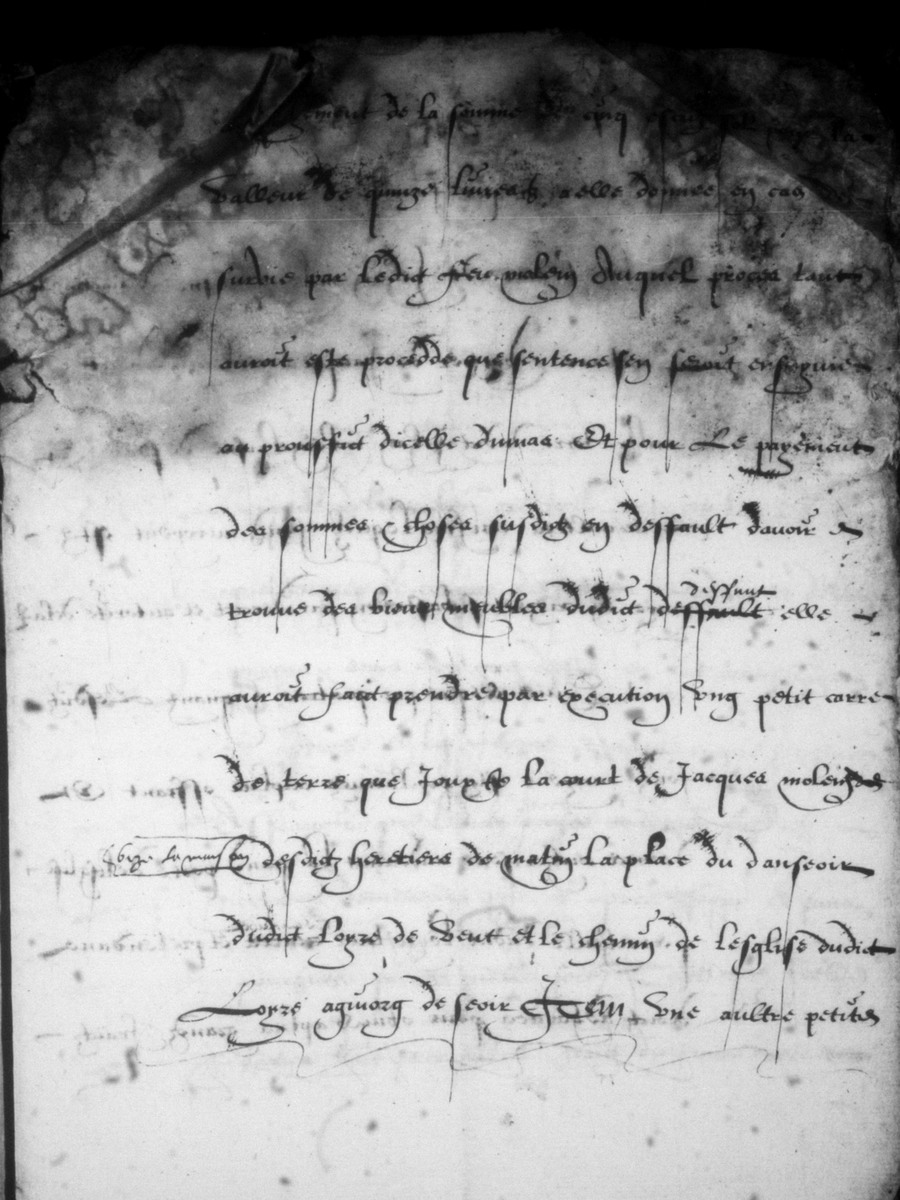 de la somme de cinq
valleur de quinze livres a elle donnee en cas
survie par ledict feu molein duquel proces tant
auroit este procedde que sentence sen seroit ensuyvie
au prouffict dicelle dumas Et pour Le payement
des sommes & choses susdictz en deffault davoir
trouve des biens meubles dudict deffault deffunt elle
auroit faict prendre par execution ung petit carre
de terre que Jouxte la court de Jacques molein
bize la maison desdictz heretiers de matin la place du danseoir
dudict Loyre de vent et le chemin de lesglise dudict
Loyre de seoir ITEM une aultre petite